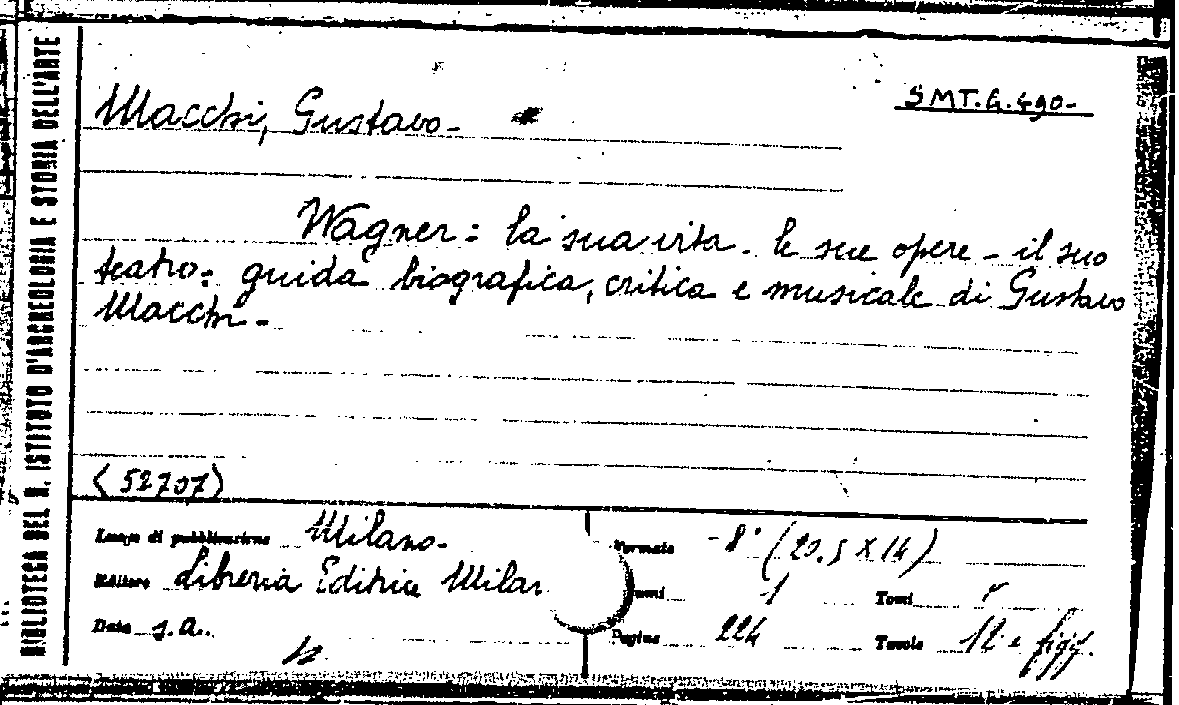 BIBLIOTECA DEL R. ISTITUTO D'ARCHEOLOGIA E STORIA DELL'ARTE
SMT.G.490-
Macchi, Gustavo-
Wagner: la sua vita - le sue opere - il suo
teatro: guida biografica, critica e musicale di Gustavo
Macchi-
(52707)
Luogo di pubblicazione Milano-
Formato -8° (20.5 X 14)
Editore Libreria Editrice Milan
1
Tomi
Data s.a.
Pagine 224
Tavole 12 e figg.